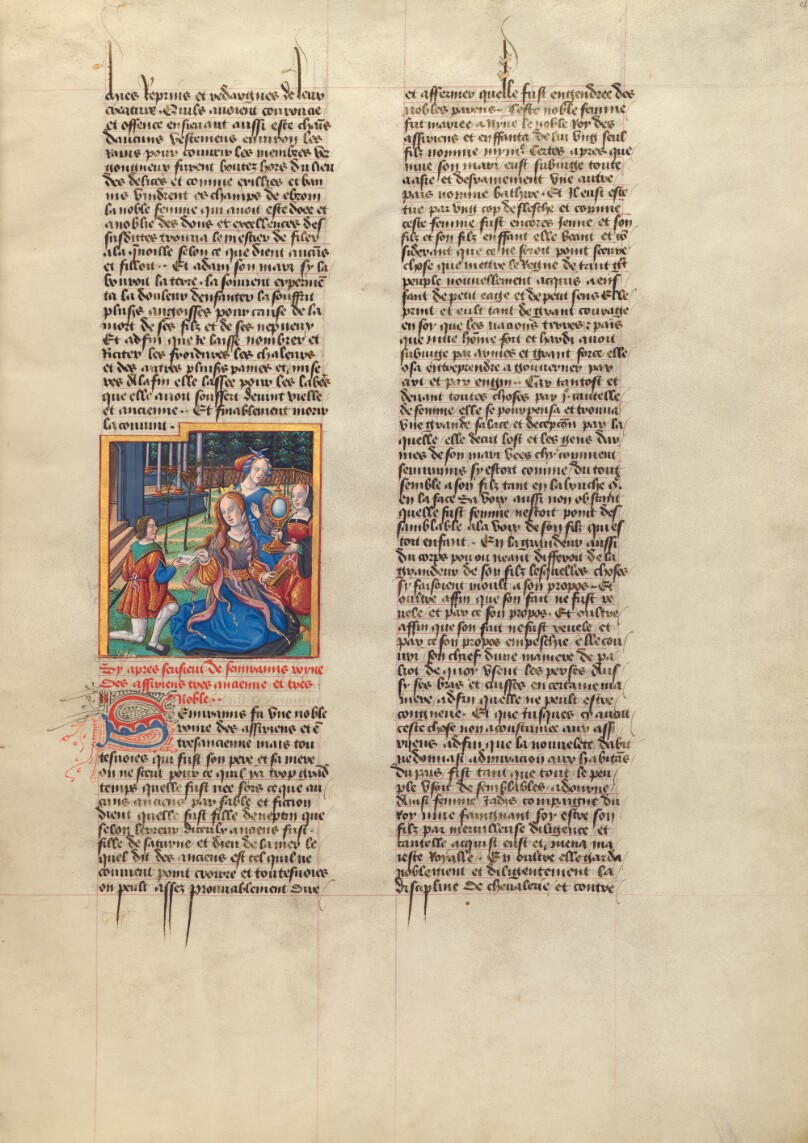 eulx reprins et redargues de leur
createur. Quilz avoient couroucie
et offencé ensievant aussi este chaus
daucuns vestemens environ les
rains pour couvrir les membres ver
gongneux furent boutez hors du lieu
des delices et comme exillies et ban
nis vindrent es champs de ebron
la noble femme qui avoit este doee et
anoblie des dons et excellences des
susdittes trouva le mestier de filer
a la quenoille selon ce que dient aucuns
et filloit. Et adam son mari sy la
bouroit la terre. la souvent experimē
ta la douleur denfanter la souffri
plusrs angoisses pour cause de la
mort de ses filz et de ses nepveux
Et adfin que je laisse nombrer et
reciter les froidures les chaleurs
et des autres plusrs paines et mise
res a la fin elle lassee pour les labrs
que elle avoit souffert devint vielle
et ancienne. Et finablement morir
la convint.
Cy apres sensieut de semiramis royne
des assiriens tres ancienne et tres
noble.
Semiramis fu une noble
roine des assiriens et ē
tresancienne mais tou
tesvoies qui fust son pere et sa mere
on ne sceut pour ce quil ya trop grād
temps quelle fust nee fors ce que au
cuns anciens par fable et fiction
dient quelle fust fille de neptun que
selon lerreur diceulx anciens fust
fille de saturne et dieu de la mer le
quel dit des anciens est tel quil ne
convient point croire et toutesvoies
on peult assez prouvablement dire
et affermer quelle fust engendree des
nobles parens. Ceste noble femme
fut mariee a nyne le noble roy des
assiriens et enffanta de lui ung seul
filz nomme nyn9. Certes apres que
nine son mari eust subiugé toute
aasie et desrainement une autre
pais nomme bathrie. Et il eust este
tue par ung cop de flesche et comme
ceste femme fust encores jenne et son
filz et son filz enffant elle veant et cō
siderant que ce ne seroit point sceure
chose que mettre le regne de tant grt
peuple nouvellement acquis a enf
fant de petit eage et de petit sens Elle
print et eult tant de grant courage
en soy que les nacions terres et pais
que nine home fort et hardi avoit
subiugé par armes et grant force elle
osa entreprendre a gouverner par
art et par engin. Car tantost et
devant toutes choses par j cautelle
de femme elle se pourpensa et trouva
une grande falace et decepcon par la
quelle elle deceut lost et les gens dar
mes de son mari vees chy comment
semiramis sy estoit comme du tout
semble a son filz tant en la bouche q.
en la face Sa voix aussi non obstant
quelle fust femme nestoit point des
samblable a la voix de son filz qui es
toit enfant. En la grandeur aussi
du corps pou ou neant differoit de la
grandeur de son filz lesquelles choses
sy faisoient moult a son propos. Et
oultre affin que son fait ne fust re
vele et par ce son propos. Et oultre
affin que son fait ne fust revele et
par ce son propos empeschie elle cou
vri son chief dune maniere de pa
liot de quoy usent les perses Aus
sy ses bras et cuisses en certaine ma
niere adfin quelle ne peult estre
congneue. Et que jusques cy avoit
ceste chose non acoustumee aux assi
riens adfin que la nouvelete dabit
ne donnast admiracion aux habitās
du pais fist tant que tout le peu
ple usoit de semblables adourne
Ainsi femme jadis compaigne du
roy nine faingnant soy estre son
filz par merveilleuse diligence et
cautelle acquist eust et mena ma
jeste royalle. En oultre elle garda
noblement et diligentement la
discipline de chevalerie et contre